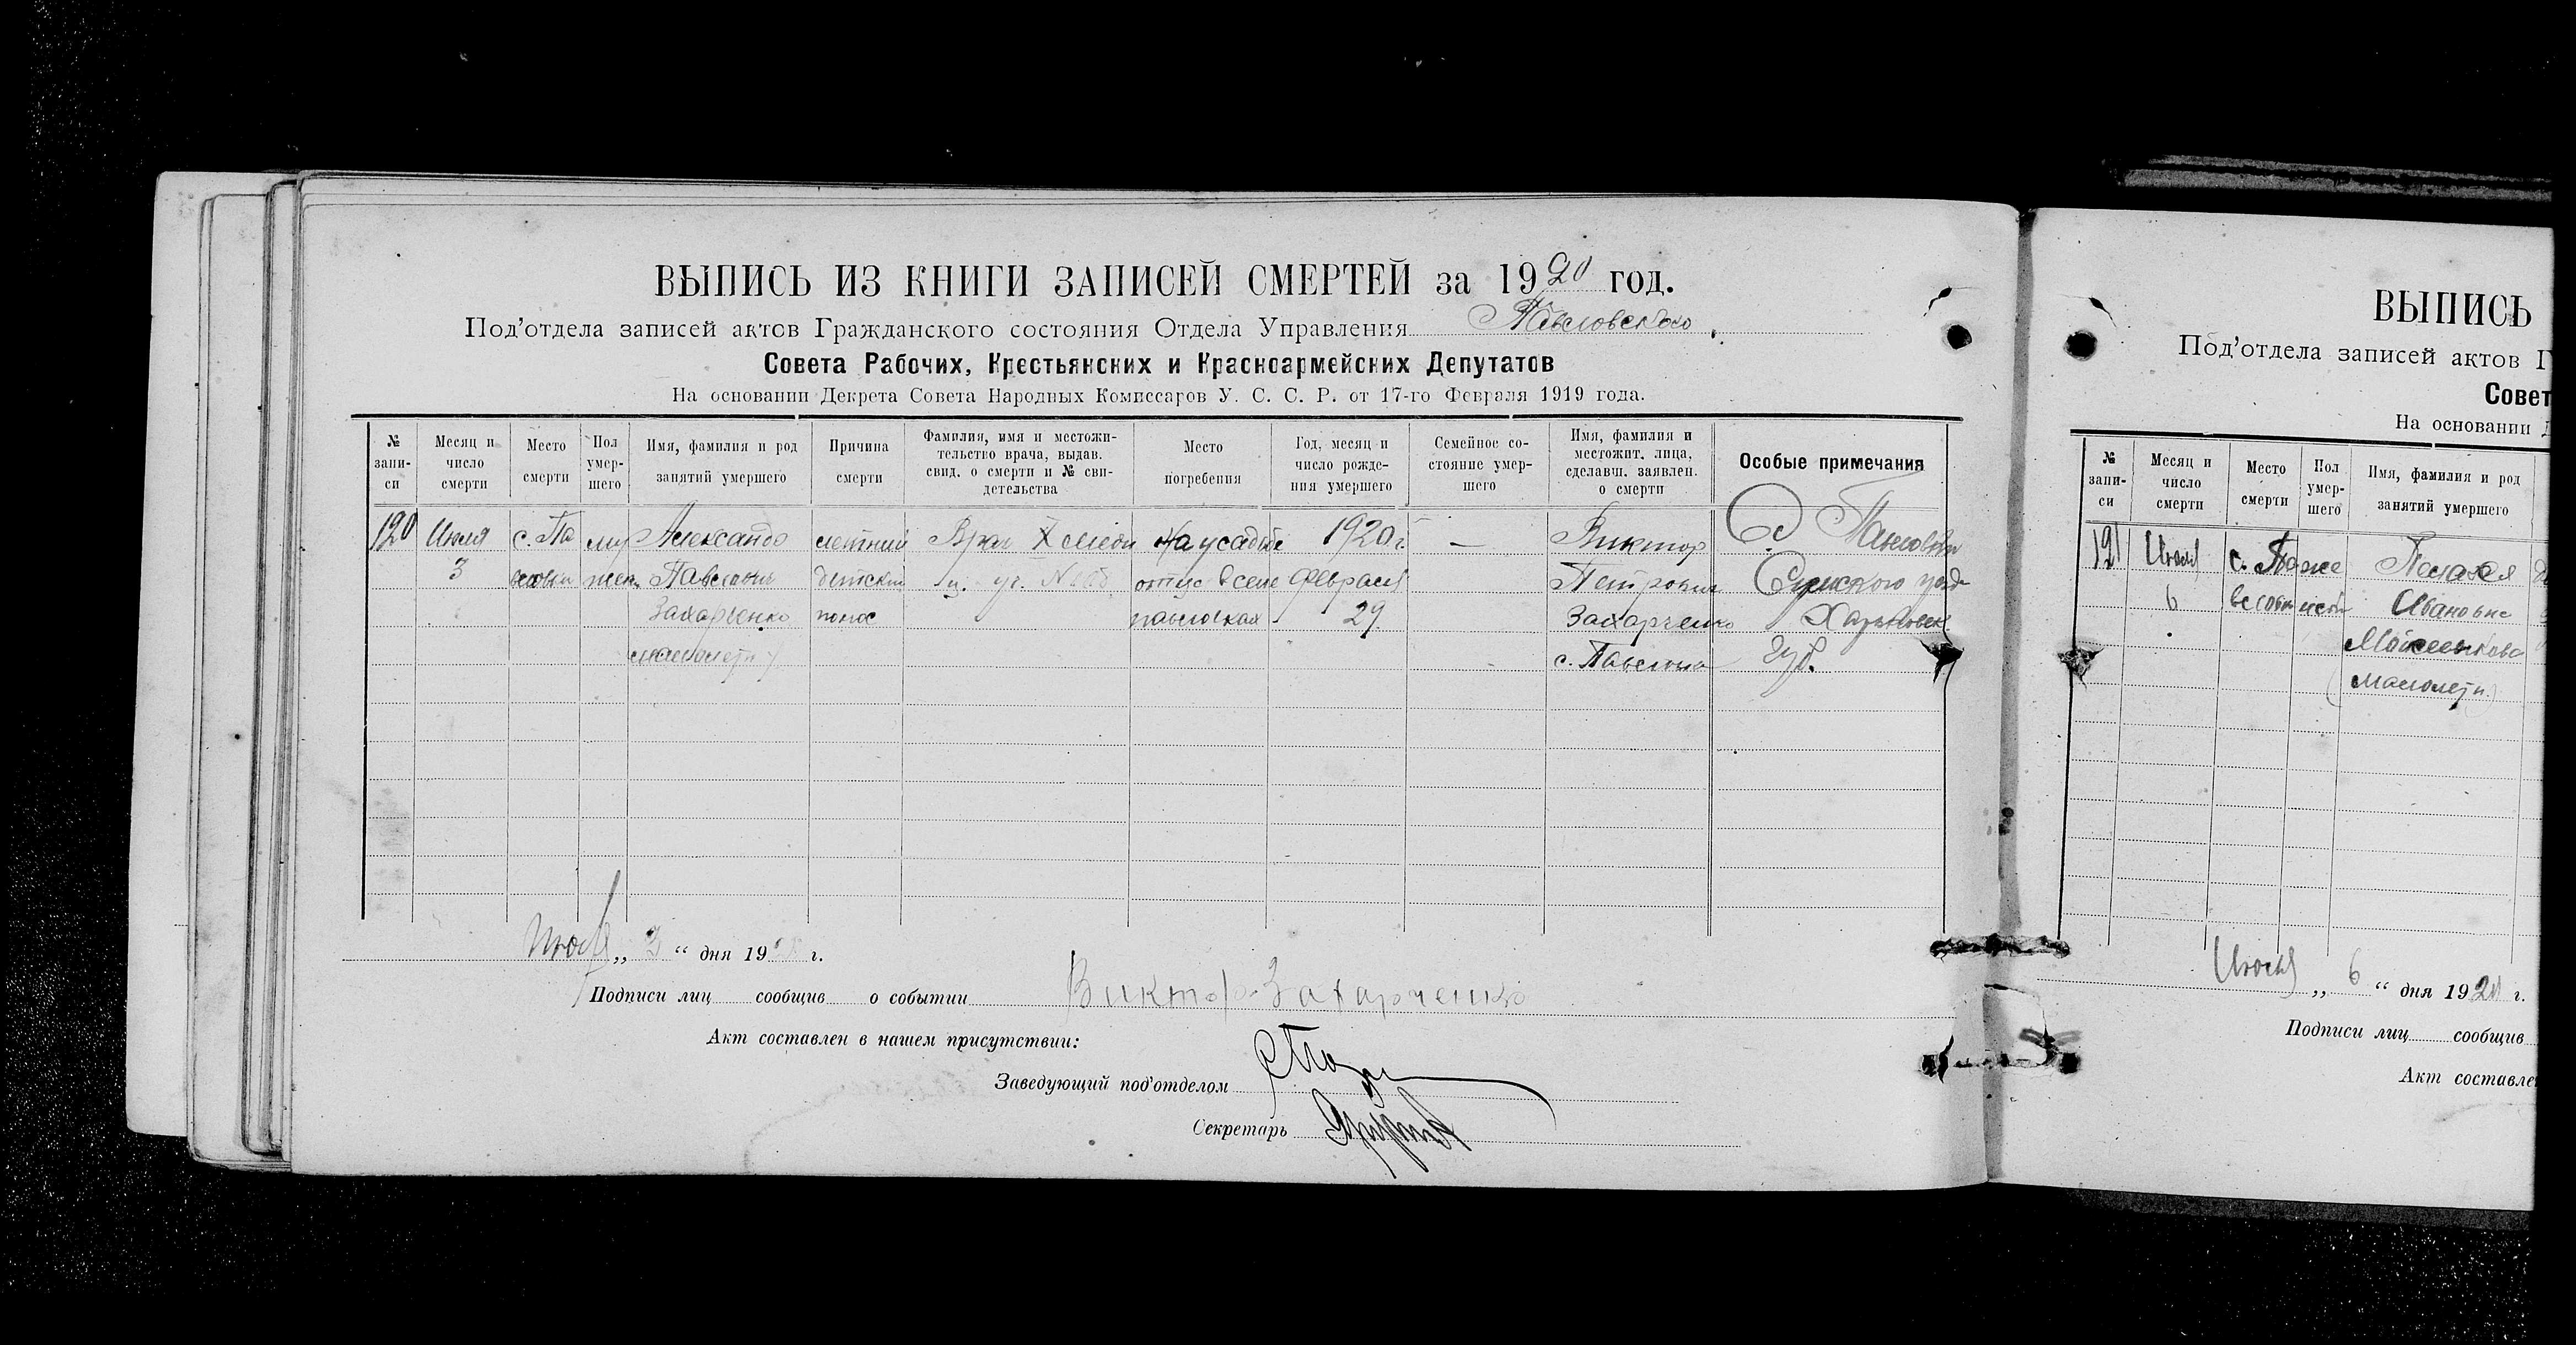 ВЫПИСЬ ИЗ КНИГИ ЗАПИСЕЙ СМЕРТЕЙ за 1920 год.
Под'отдела записей актов Гражданского состояния Отдела Управления Павловского
Совета Рабочих, Крестьянских и Красноармейских Депутатов
На основании Декрета Совета Народных Комиссаров У. С. С. Р. от 17-го Февраля 1919 года.
№ запи-си
Месяц и число смерти
Место смерти
Пол умер-шего
Имя, фамилия и род занятий умершего
Причина смерти
Фамилия, имя и местожи-тельство врача, выдав. свид. о смерти и № сви-детельства
Место погребения
Год, месяц и число рожде-ния умершего
Семейное со-стояние умер-шего
Имя, фамилия и местожит. лица, сделавш. заявлен. о смерти
Особые примечания
120 Июля с. Па Александр летний Врач на усадьбе 1920 г. — Виктор Павловки
3 Павлович детский отца в селе Февраля Петрович Сумского уезда
Захарченко понос павловках 29 Захарченко Харьковск.
малолетн. с. Павловка губ.
Июля „ 3 “ дня 19 г.
Подписи лиц сообщив о событии Виктор Захарченко
Акт составлен в нашем присутствии:
Заведующий под'отделом
Секретарь
ВЫПИСЬ
Под'отдела записей актов Г
Совет
На основании Д
№ запи-си
Месяц и число смерти
Место смерти
Пол умер-шего
Имя, фамилия и род занятий умершего
121 Июля с. Па Пелагея
6 Ивановна
(малолетн.)
Июля „ 6 “ дня 1920 г.
Подписи лиц сообщив
Акт составле